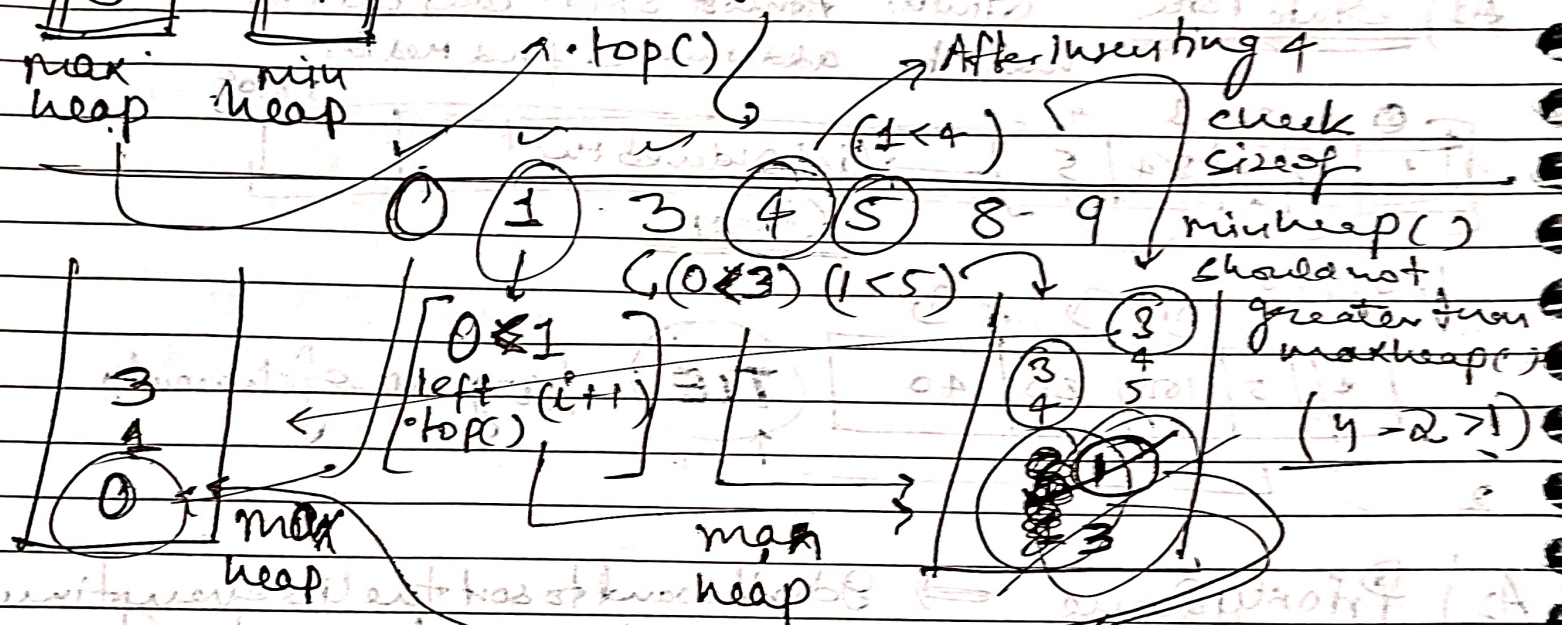 max
heap
min
heap
.top()
After inserting 4
(1<4)
check
size of
minheap()
should not
greater than
maxheap()
0 1 3 4 5 8 9
(0<3) (1<5)
0<1
left (i+1)
.top()
3
1
0
max
heap
3
4
3
4
5
1
3
(4-2>1)
max
heap